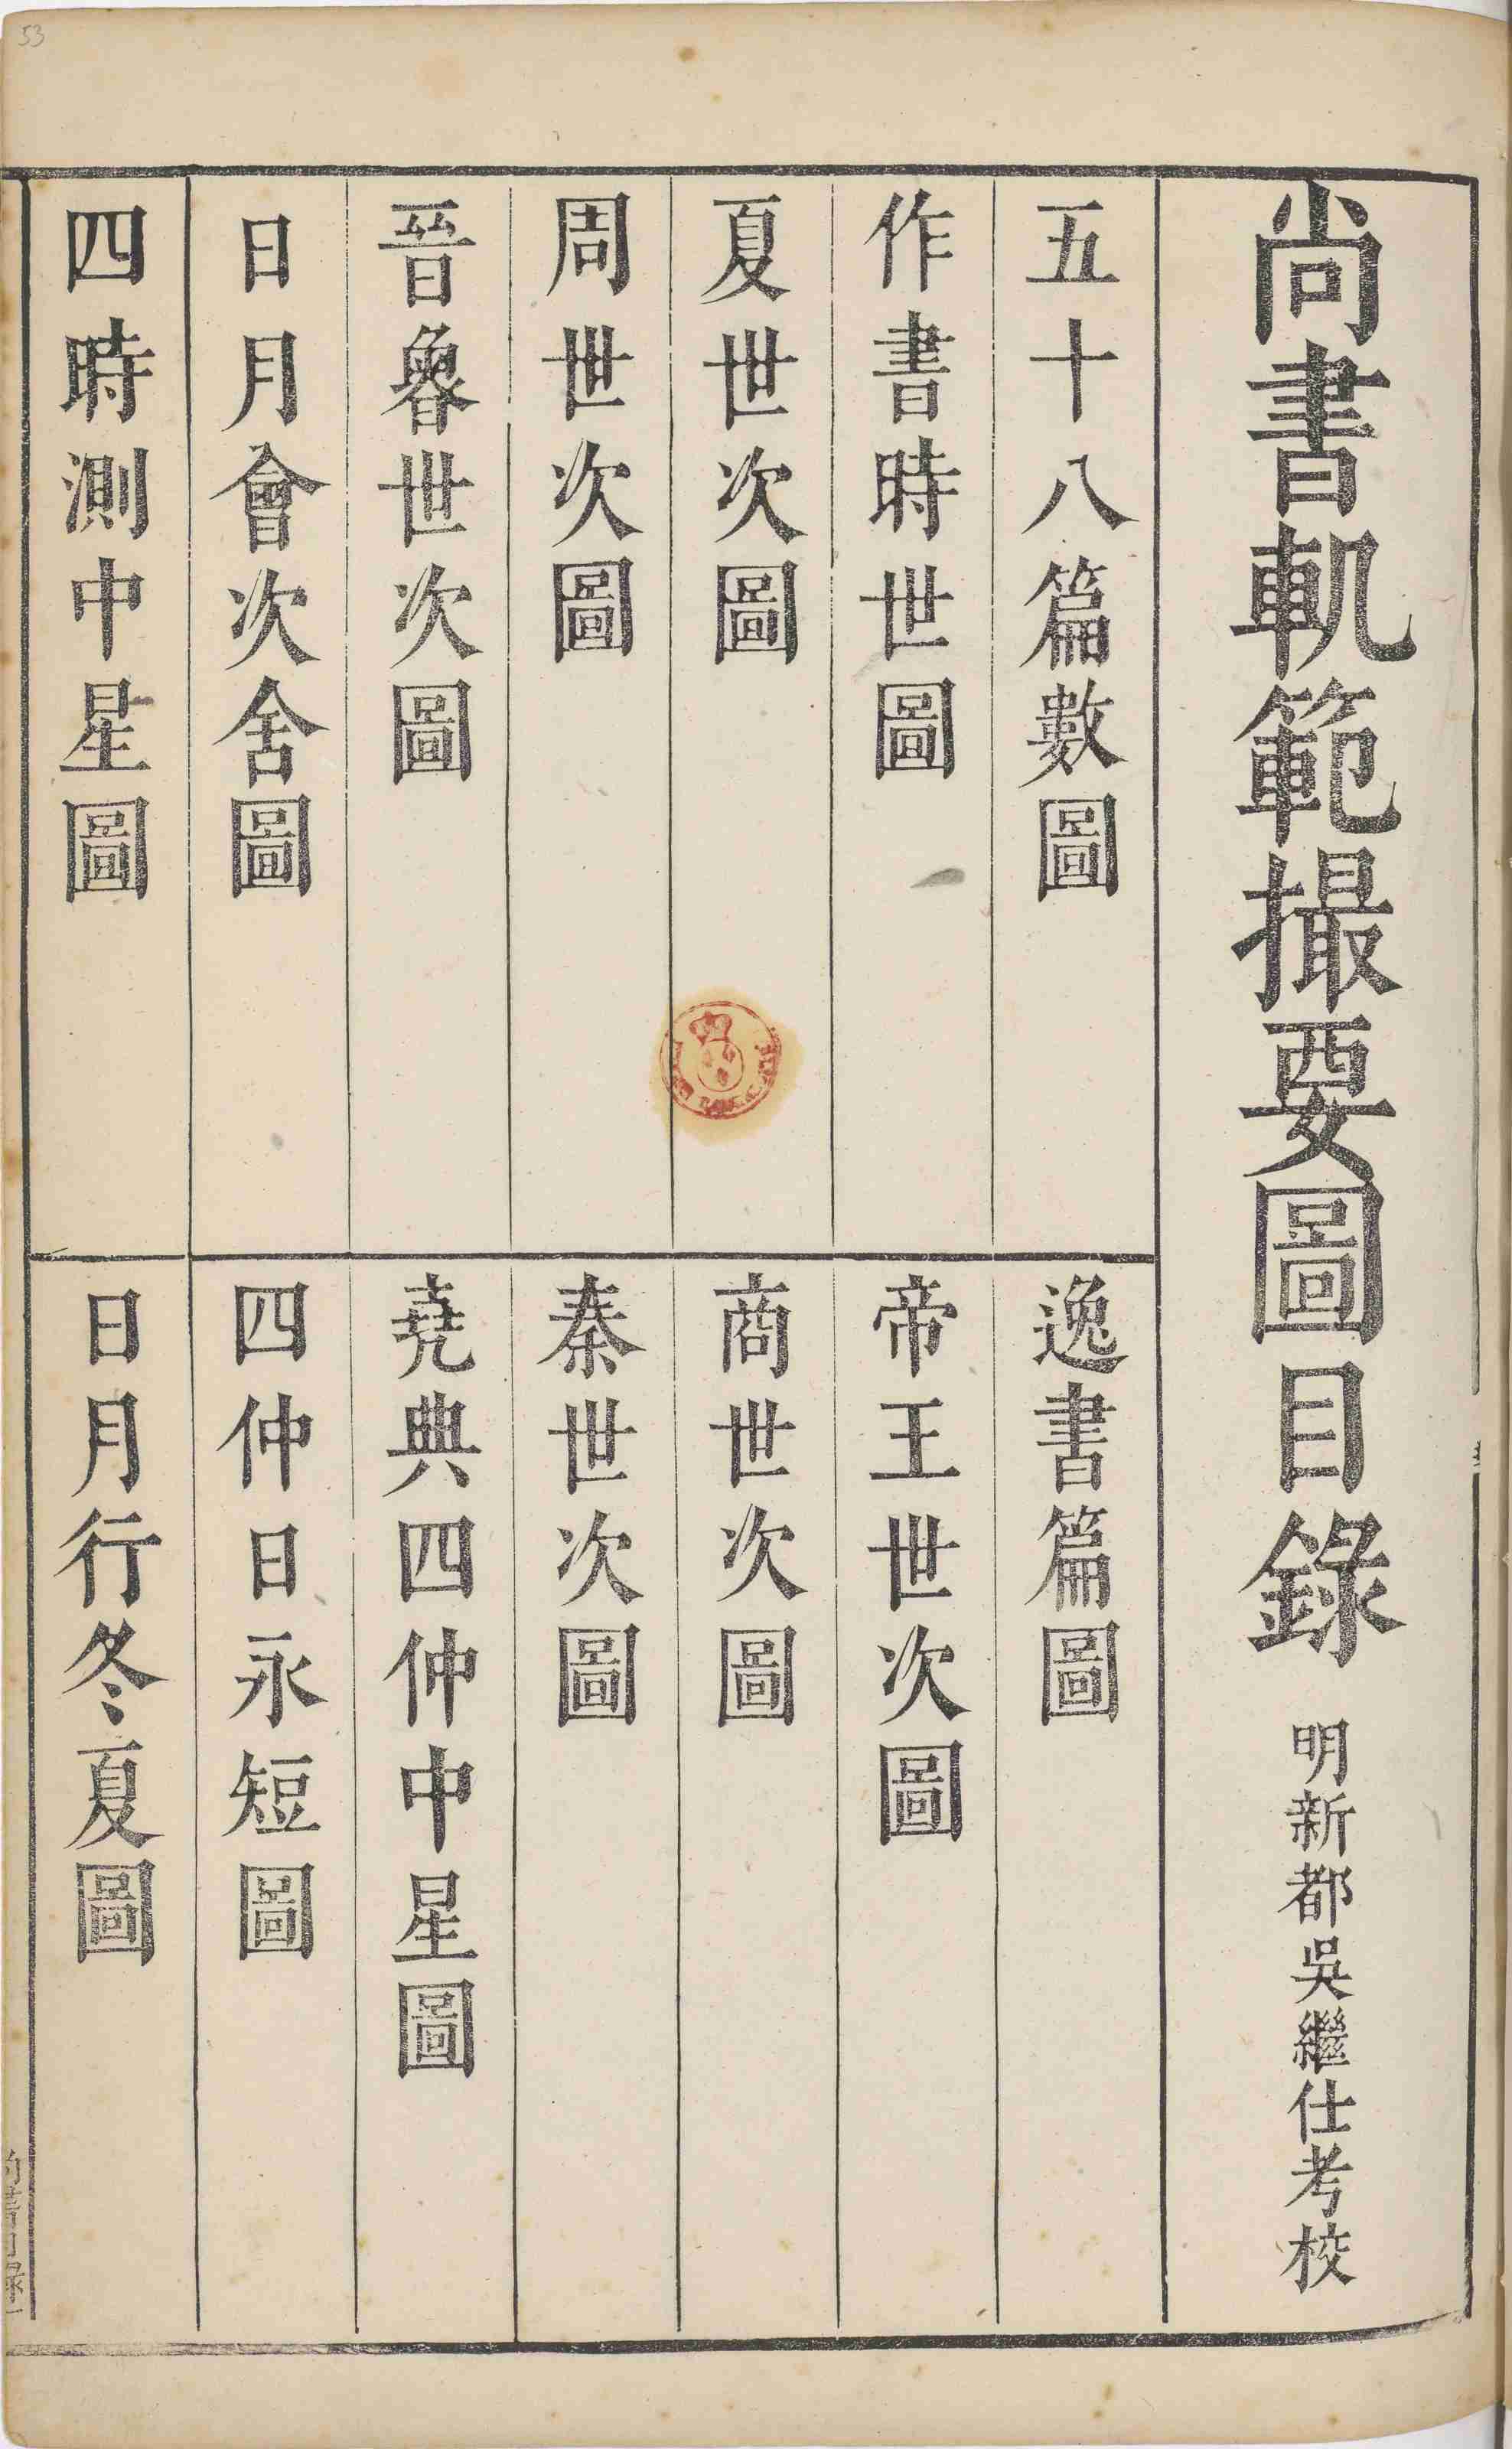 尚書軌範撮要圖目錄 明新都吳繼仕考校
五十八篇數圖 逸書篇圖
作書時世圖 帝王世次圖
夏世次圖 商世次圖
周世次圖 秦世次圖
晉魯世次圖 堯典四仲中星圖
日月會次舍圖 四仲日永短圖
四時測中星圖 日月行冬夏圖
53